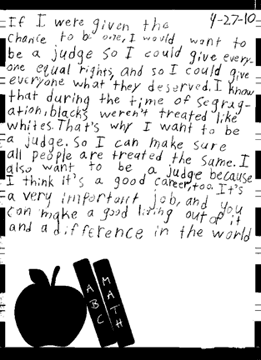 4-27-10
If I were given the
chance to be one, I would want to
be a judge so I could give every-
one equal rights, and so I could give
everyone what they deserved. I know
that during the time of Segrag-
ation, blacks weren't treated like
whites. That's why I want to be
a judge. So I can make sure
all people are treated the same. I
also want to be a judge because
I think it's a good career, too. It's
a very important job, and you
can make a good living out of it
and a difference in the world
ABC
MATH